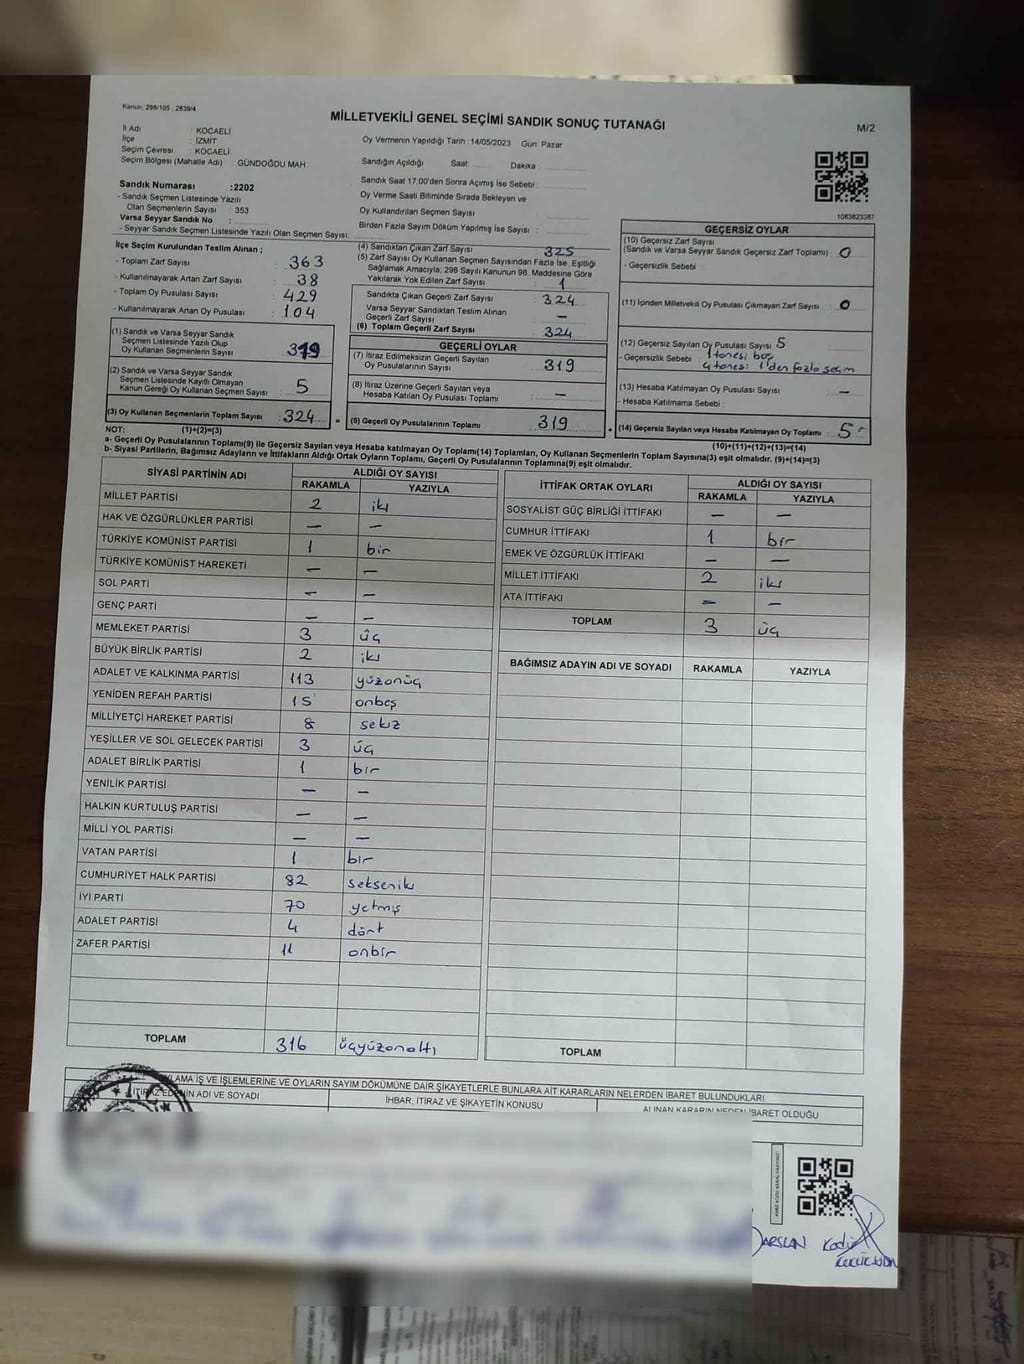 Kanun: 298/105 , 2839/4
MİLLETVEKİLİ GENEL SEÇİMİ SANDIK SONUÇ TUTANAĞI
M/2
İl Adı : KOCAELİ
İlçe : İZMİT
Seçim Çevresi : KOCAELİ
Seçim Bölgesi (Mahalle Adı) : GÜNDOĞDU MAH.
Oy Vermenin Yapıldığı Tarih :14/05/2023 Gün: Pazar
Sandığın Açıldığı Saat: Dakika
Sandık Saat 17:00'den Sonra Açımış İse Sebebi :
Oy Verme Saati Bitiminde Sırada Bekleyen ve
Oy Kullandırılan Seçmen Sayısı :
Birden Fazla Sayım Döküm Yapılmış İse Sayısı :
1083823387
Sandık Numarası :2202
- Sandık Seçmen Listesinde Yazılı
Olan Seçmenlerin Sayısı : 353
Varsa Seyyar Sandık No :
- Seyyar Sandık Seçmen Listesinde Yazılı Olan Seçmen Sayısı:
İlçe Seçim Kurulundan Teslim Alınan ;
- Toplam Zarf Sayısı : 363
- Kullanılmayarak Artan Zarf Sayısı : 38
- Toplam Oy Pusulası Sayısı : 429
- Kullanılmayarak Artan Oy Pusulası : 104
(1) Sandık ve Varsa Seyyar Sandık
Seçmen Listesinde Yazılı Olup
Oy Kullanan Seçmenlerin Sayısı : 319
(2) Sandık ve Varsa Seyyar Sandık
Seçmen Listesinde Kayıtlı Olmayan
Kanun Gereği Oy Kullanan Seçmen Sayısı : 5
(3) Oy Kullanan Seçmenlerin Toplam Sayısı : 324
(1)+(2)=(3)
(4) Sandıktan Çıkan Zarf Sayısı : 325
(5) Zarf Sayısı Oy Kullanan Seçmen Sayısından Fazla İse, Eşitliği
Sağlamak Amacıyla; 298 Sayılı Kanunun 98. Maddesine Göre
Yakılarak Yok Edilen Zarf Sayısı : 1
Sandıkta Çıkan Geçerli Zarf Sayısı : 324
Varsa Seyyar Sandıktan Teslim Alınan
Geçerli Zarf Sayısı : –
(6) Toplam Geçerli Zarf Sayısı : 324
GEÇERLİ OYLAR
(7) İtiraz Edilmeksizin Geçerli Sayılan
Oy Pusulalarının Sayısı : 319
(8) İsraz Üzerine Geçerli Sayılan veya
Hesaba Katılan Oy Pusulası Toplamı : –
= (9) Geçerli Oy Pusulalarının Toplamı : 319
GEÇERSİZ OYLAR
(10) Geçersiz Zarf Sayısı
(Sandık ve Varsa Seyyar Sandık Geçersiz Zarf Toplamı) : 0
- Geçersizlik Sebebi :
(11) İçinden Milletvekili Oy Pusulası Çıkmayan Zarf Sayısı : 0
(12) Geçersiz Sayılan Oy Pusulası Sayısı : 5
- Geçersizlik Sebebi : 1 tanesi boş
4 tanesi 1'den fazla seçim
(13) Hesaba Katılmayan Oy Pusulası Sayısı : –
- Hesaba Katılmama Sebebi :
+ (14) Geçersiz Sayılan veya Hesaba Katılmayan Oy Toplamı : 5
(10)+(11)+(12)+(13)=(14)
NOT:
a- Geçerli Oy Pusulalarının Toplamı(9) ile Geçersiz Sayılan veya Hesaba katılmayan Oy Toplamı(14) Toplamları, Oy Kullanan Seçmenlerin Toplam Sayısına(3) eşit olmalıdır. (9)+(14)=(3)
b- Siyasi Partilerin, Bağımsız Adayların ve İttifakların Aldığı Ortak Oyların Toplamı, Geçerli Oy Pusulalarının Toplamına(9) eşit olmalıdır.
SİYASİ PARTİNİN ADI ALDIĞI OY SAYISI
RAKAMLA YAZIYLA
MİLLET PARTİSİ 2 iki
HAK VE ÖZGÜRLÜKLER PARTİSİ – –
TÜRKİYE KOMÜNİST PARTİSİ 1 bir
TÜRKİYE KOMÜNİST HAREKETİ – –
SOL PARTİ – –
GENÇ PARTİ – –
MEMLEKET PARTİSİ 3 üç
BÜYÜK BİRLİK PARTİSİ 2 iki
ADALET VE KALKINMA PARTİSİ 113 yüzonüç
YENİDEN REFAH PARTİSİ 15 onbeş
MİLLİYETÇİ HAREKET PARTİSİ 8 sekiz
YEŞİLLER VE SOL GELECEK PARTİSİ 3 üç
ADALET BİRLİK PARTİSİ 1 bir
YENİLİK PARTİSİ – –
HALKIN KURTULUŞ PARTİSİ – –
MİLLİ YOL PARTİSİ – –
VATAN PARTİSİ 1 bir
CUMHURİYET HALK PARTİSİ 82 sekseniki
İYİ PARTİ 70 yetmiş
ADALET PARTİSİ 4 dört
ZAFER PARTİSİ 11 onbir
TOPLAM 316 üçyüzonaltı
İTTİFAK ORTAK OYLARI ALDIĞI OY SAYISI
RAKAMLA YAZIYLA
SOSYALİST GÜÇ BİRLİĞİ İTTİFAKI – –
CUMHUR İTTİFAKI 1 bir
EMEK VE ÖZGÜRLÜK İTTİFAKI – –
MİLLET İTTİFAKI 2 iki
ATA İTTİFAKI – –
TOPLAM 3 üç
BAĞIMSIZ ADAYIN ADI VE SOYADI RAKAMLA YAZIYLA
TOPLAM
LAMA İŞ VE İŞLEMLERİNE VE OYLARIN SAYIM DÖKÜMÜNE DAİR ŞİKAYETLERLE BUNLARA AİT KARARLARIN NELERDEN İBARET BULUNDUKLARI
İTİRAZ EDENİN ADI VE SOYADI
İHBAR, İTİRAZ VE ŞİKAYETİN KONUSU
ALINAN KARARIN NEDEN İBARET OLDUĞU
ARSLAN Kadir